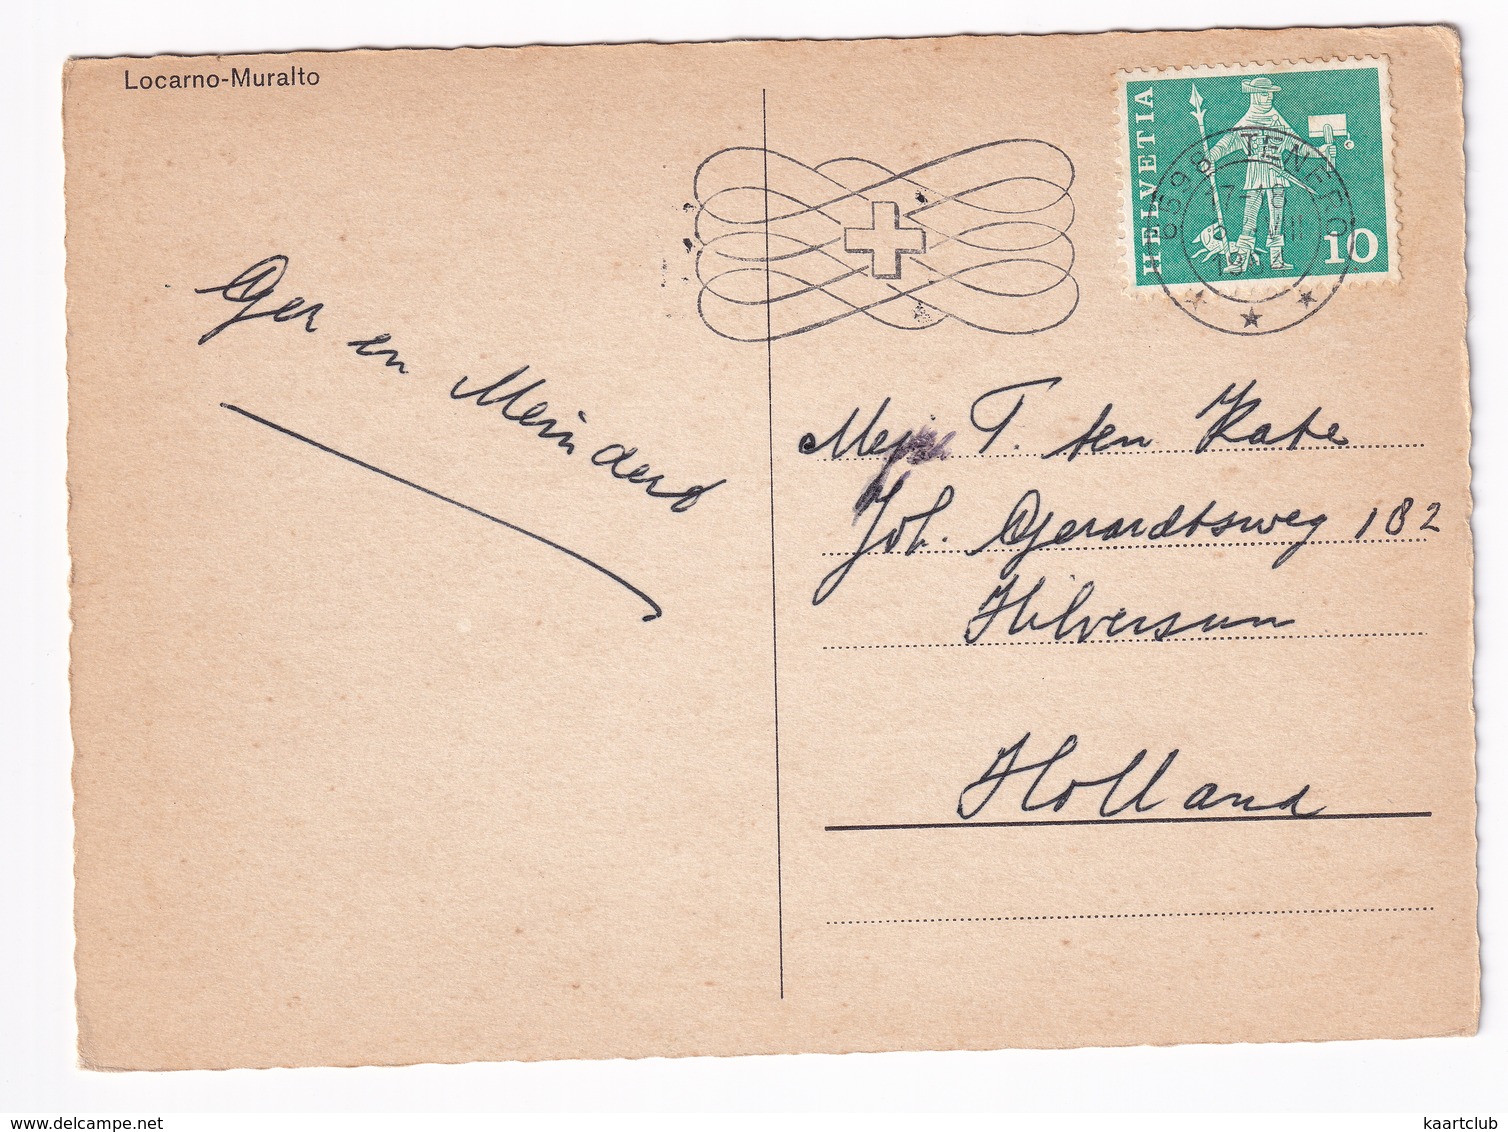 Locarno-Muralto
HELVETIA
10
6598 TENERO
Ger en Meindert
Mej. T. ten Kate
Joh. Gerardtsweg 182
Hilversum
Holland
www.delcampe.net
kaartclub